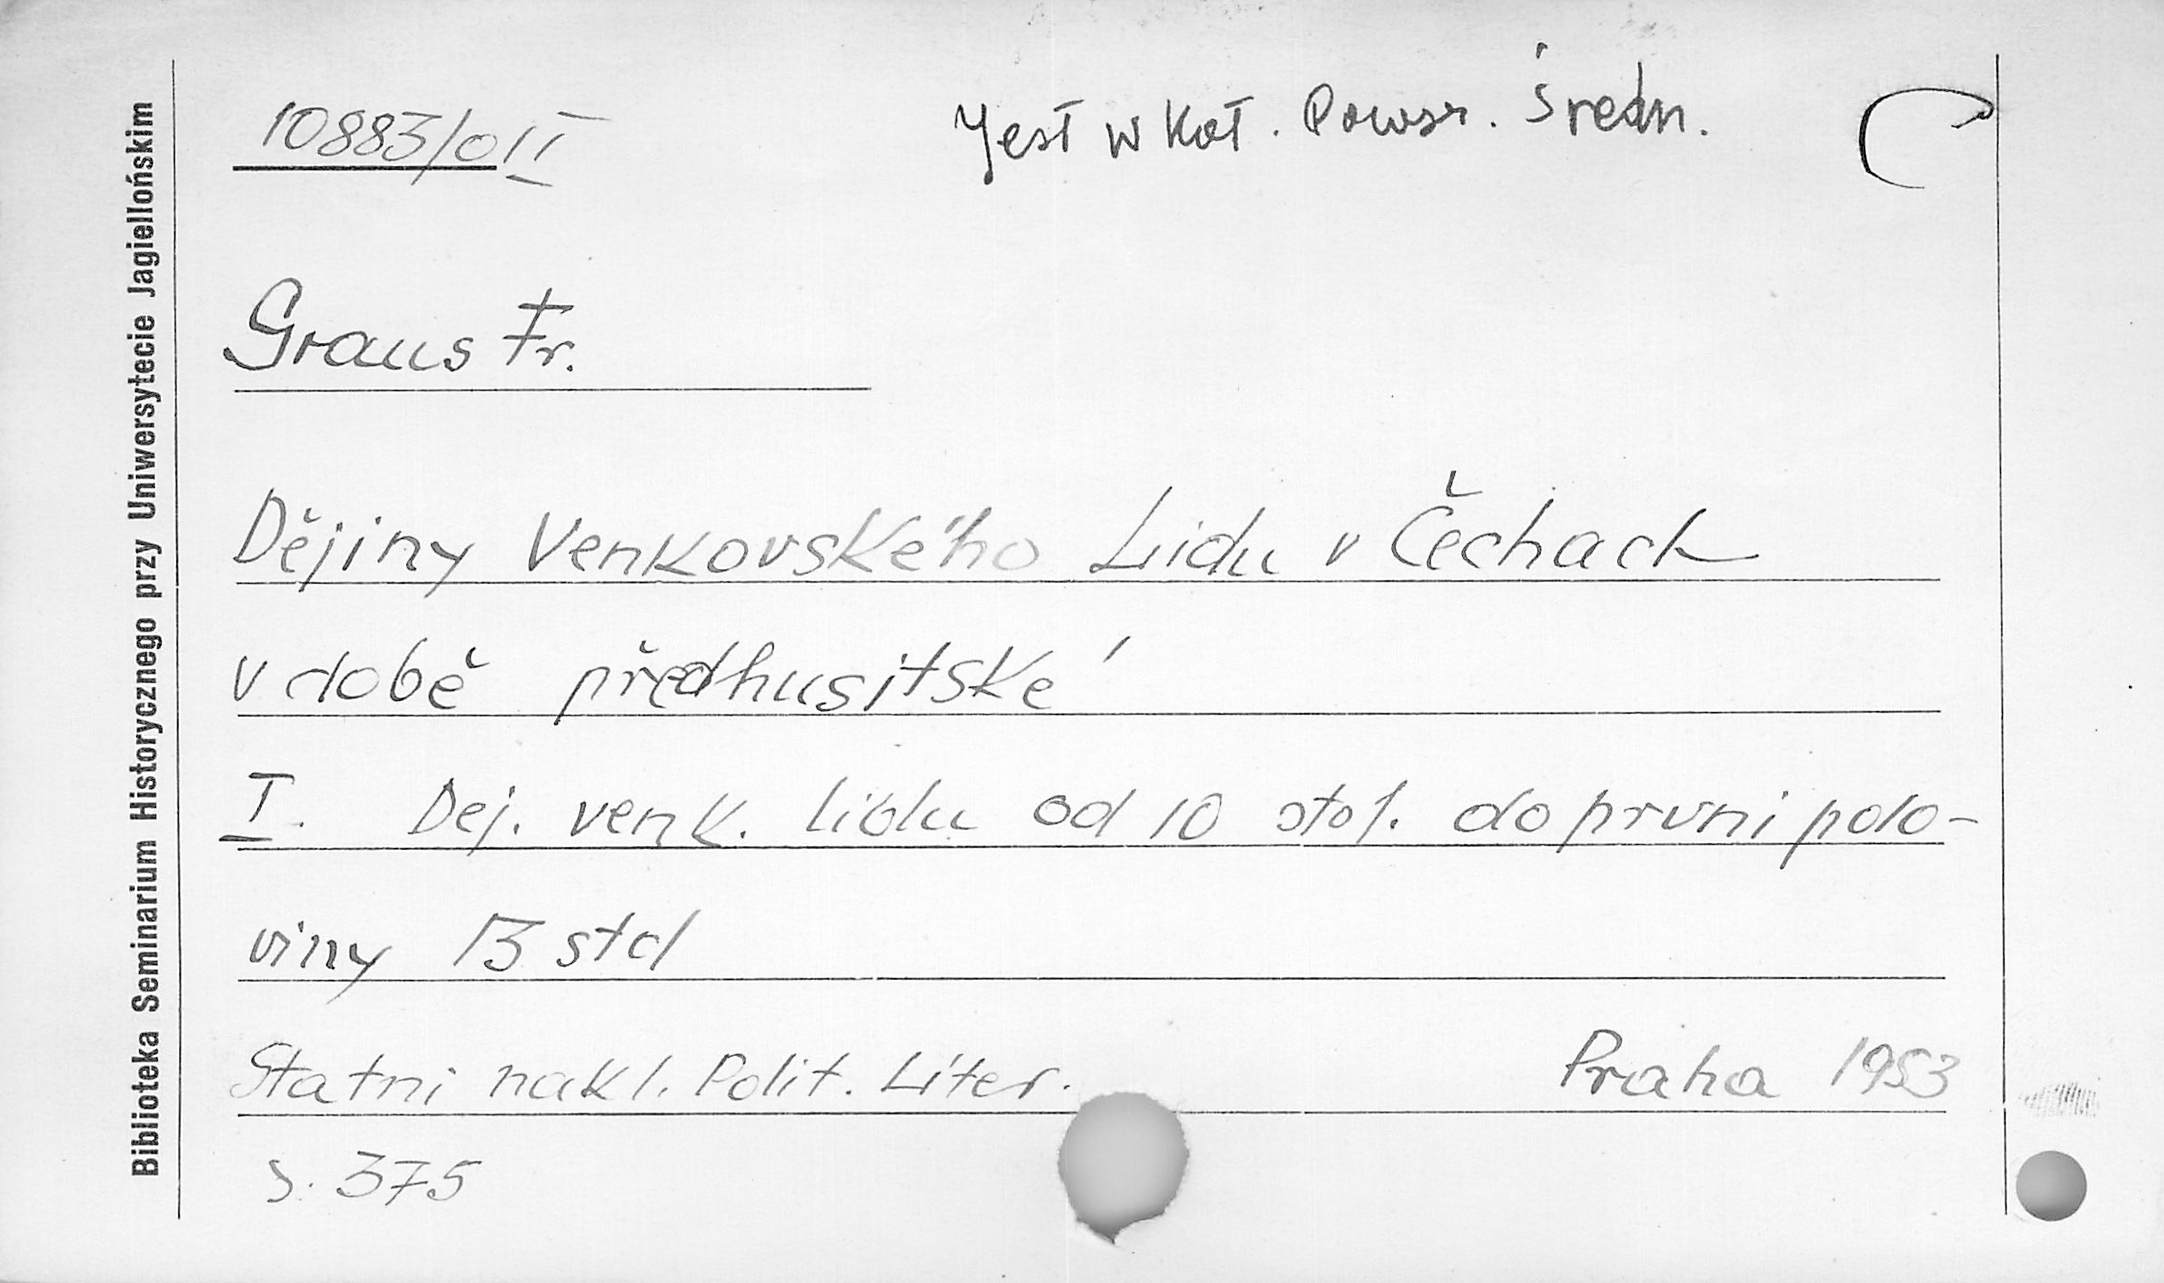 10883/0 II
Jest w Kat. Powsz. Średn.
Graus Fr.
Dějiny Venkovského Lidu v Čechach
v době předhusitské
I. Dej. venk. lidu od 10 stol. do prvni polo-
viny 13 stol
Statni nakl. Polit. Liter. Praha 1953
s. 375
Biblioteka Seminarium Historycznego przy Uniwersytecie Jagiellońskim